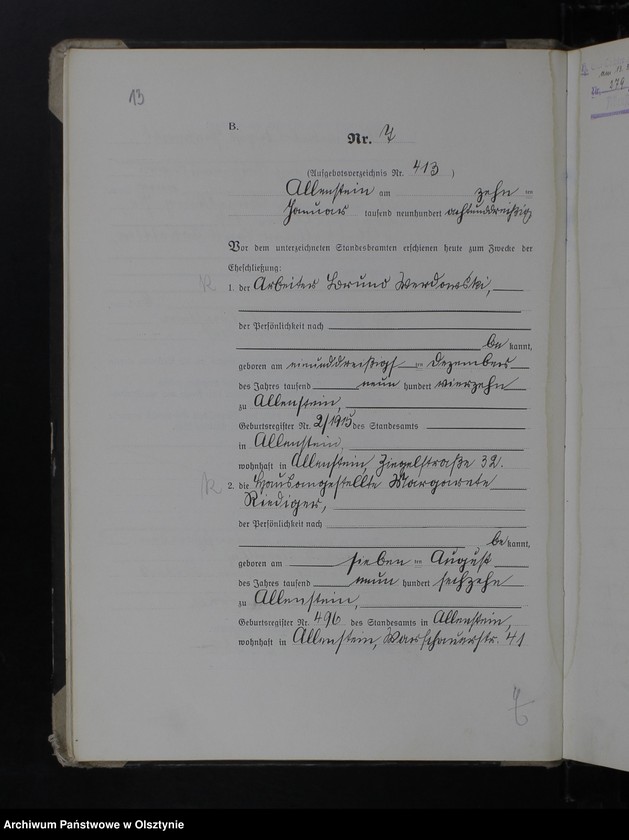 13
B.
Nr. 7
(Aufgebotsverzeichnis Nr. 413)
Allenstein am zehn ten
Januar tausend neunhundert achtunddreißig
Vor dem unterzeichneten Standesbeamten erschienen heute zum Zwecke der
Eheschließung:
1. der Arbeiter Bruno Werdowski,
der Persönlichkeit nach
be kannt,
geboren am einunddreißigst ten Dezember
des Jahres tausend neun hundert vierzehn
zu Allenstein,
Geburtsregister Nr. 2/1915 des Standesamts
in Allenstein,
wohnhaft in Allenstein, Ziegelstraße 32.
2. die Hausangestellte Margarete
Riediger,
der Persönlichkeit nach
be kannt,
geboren am sieben ten August
des Jahres tausend neun hundert sechzehn
zu Allenstein,
Geburtsregister Nr. 496 des Standesamts in Allenstein,
wohnhaft in Allenstein, Warschauerstr. 41
279
Archiwum Państwowe w Olsztynie